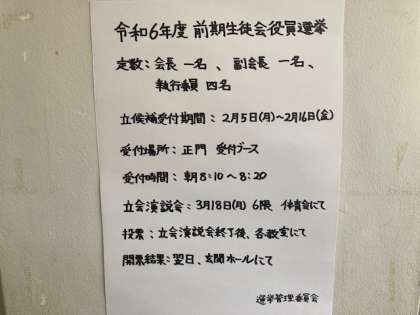 令和6年度 前期生徒会役員選挙
定数：会長 一名 、 副会長 一名 、
執行委員 四名
立候補受付期間：2月5日(月)〜2月16日(金)
受付場所：正門 受付ブース
受付時間：朝8:10〜8:20
立会演説会：3月18日(月) 6限 体育会にて
投票：立会演説会終了後、各教室にて
開票結果：翌日、玄関ホールにて
選挙管理委員会